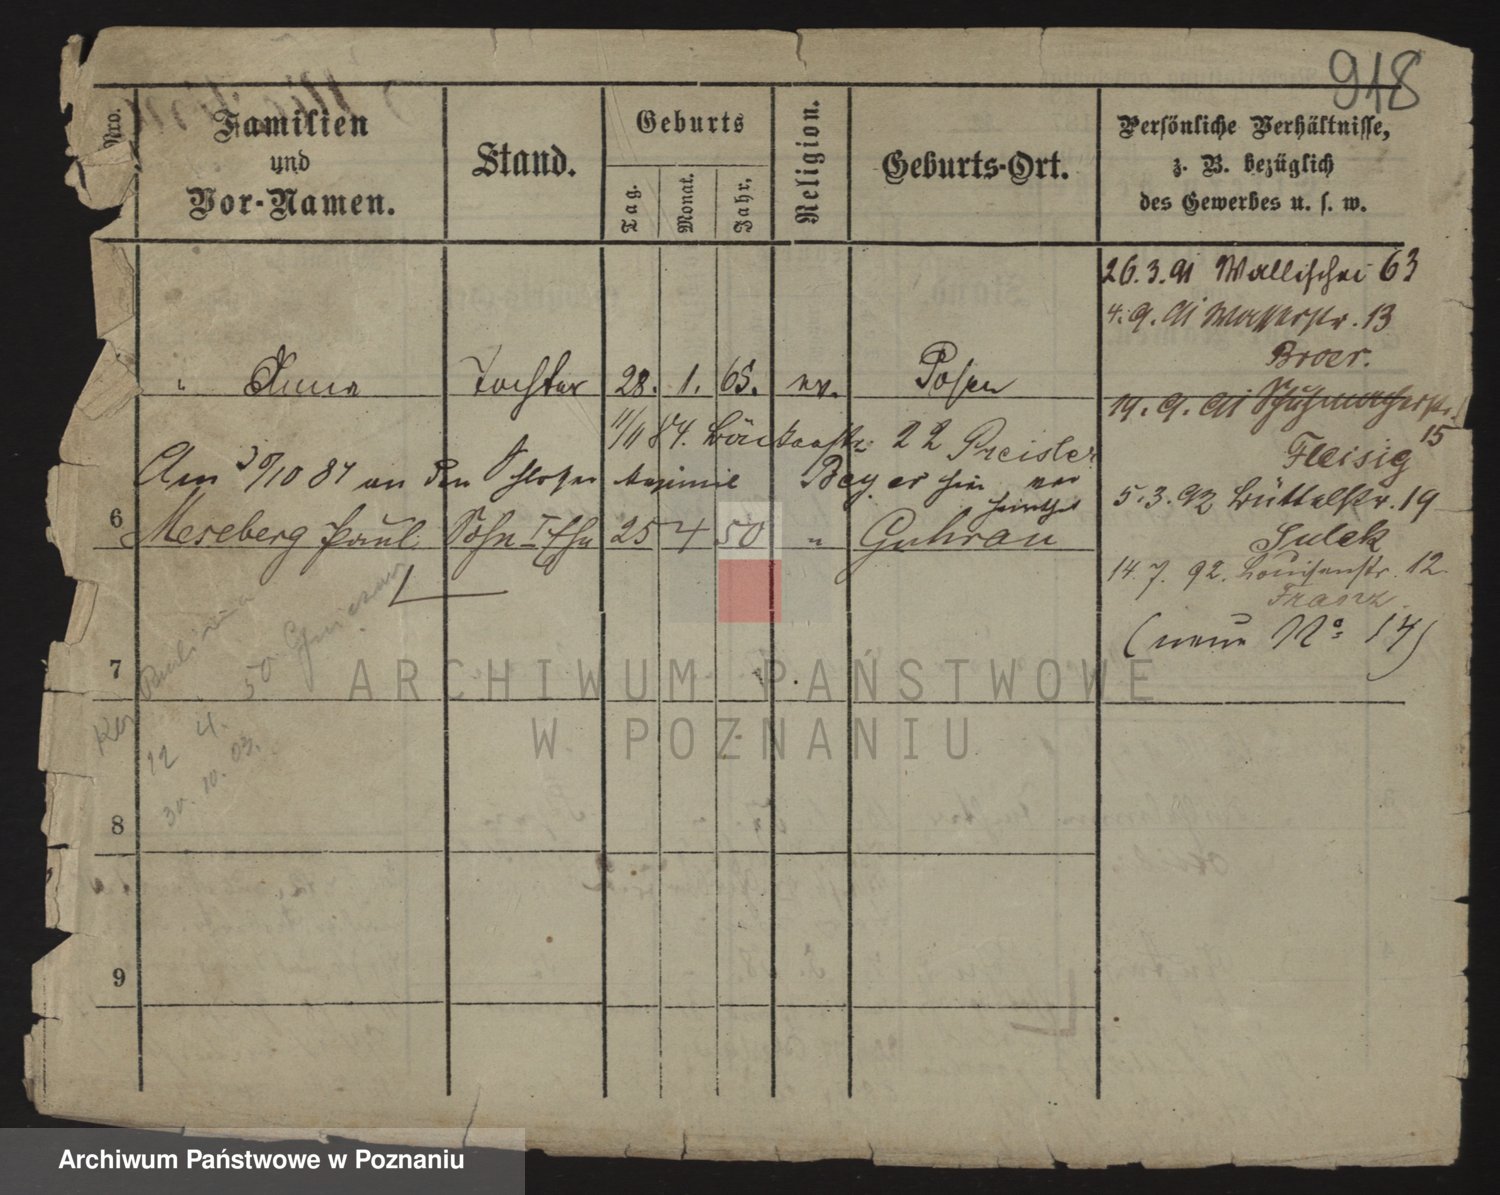 918
Nro.
Familien
und
Vor-Namen.
Stand.
Geburts
Tag.
Monat.
Jahr.
Religion.
Geburts-Ort.
Persönliche Verhältnisse,
z. B. bezüglich
des Gewerbes u. s. w.
26.3.91 Wallischei 63
4.9.91 Wasserstr. 13
Broer.
" Anna Tochter 28. 1. 65. ev. Posen
19.9.91 Schuhmacherstr. 15
11/11 84. Bäckerstr. 22 Preisler
Fleisig
Am 30/10 84 an den Schlosser Beyer hier ver
heirathet
5.3.92 Büttelstr. 19
6 Mereberg Paul Sohn I Ehe 25 4 50 " Guhrau
Sulek
14.7.92. Louisenstr. 12.
Franz.
(neue No. 17)
7
12 4. 50 Gniezno
30.10.03.
8
9
ARCHIWUM PAŃSTWOWE
W POZNANIU
Archiwum Państwowe w Poznaniu